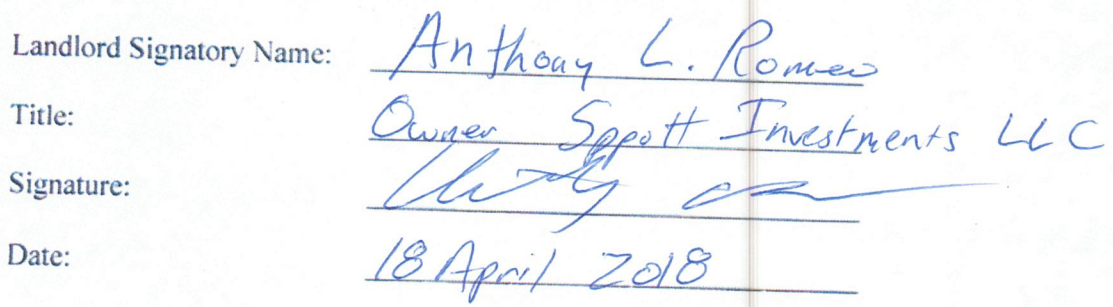 Landlord Signatory Name: Anthony L. Romeo
Title: Owner Sppott Investments LLC
Signature:
Date: 18 April 2018